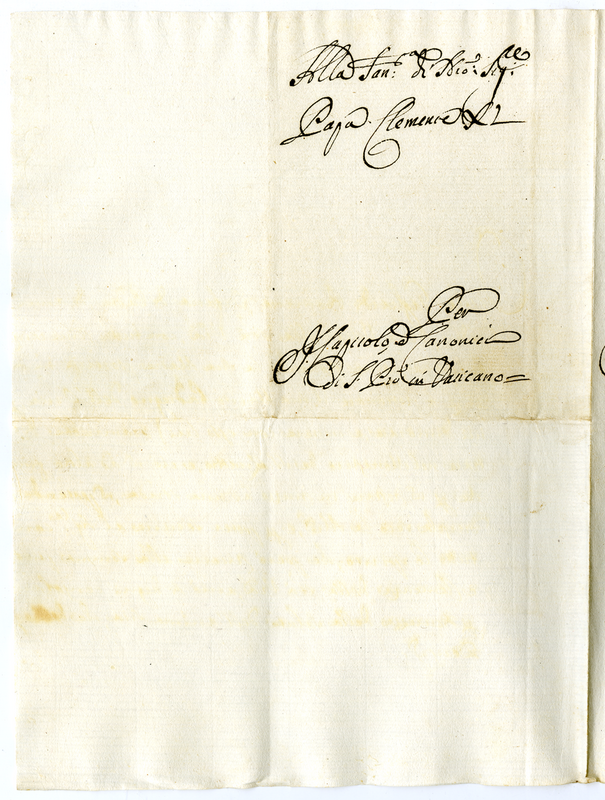 Alla San:ᵃ di Nro: Sigʳᵉ
Papa Clemente XI
Per
Il Capitolo, e Canonici
di S. Pro in Vaticano=